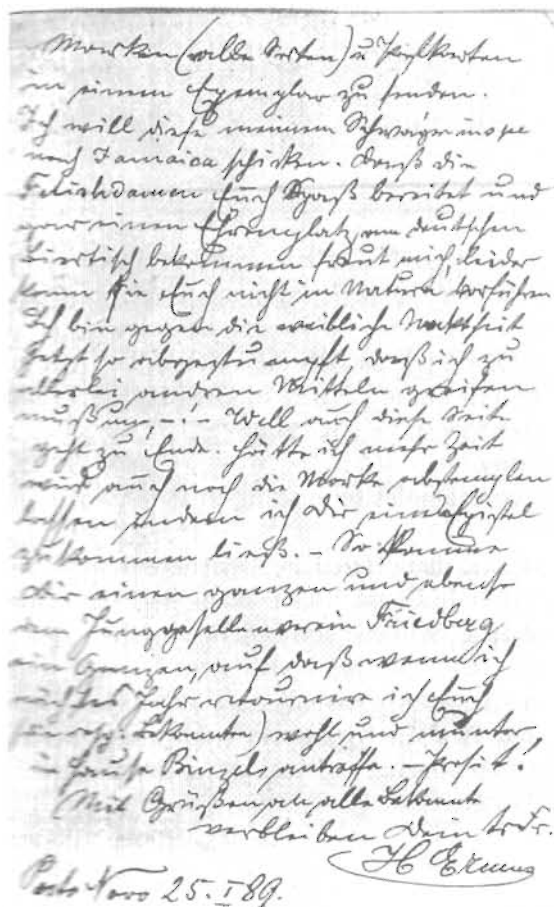 Marken (alle Sorten) u Postkarten
in einem Exemplar zu senden.
Ich will diese meinem Schwager
nach Jamaica schicken. Daß die
Fetischdamen Euch Spaß bereitet und
gar einen Ehrenplatz am deutschen
Biertisch bekommen freut mich, leider
kann sie Euch nicht in Natura vorführen
Ich bin gegen die weibliche Nacktheit
jetzt so abgestumpft, daß ich zu
allerlei andren Mitteln greifen
muß um, – ! – Well auch diese Seite
geht zu Ende. Hätte ich mehr Zeit
würd auch noch die Marke abstempeln
lassen indem ich Dir eine Epistel
zukommen ließ. – So komme
Dir einen ganzen und ebenso
dem Junggesellenverein Friedberg
ein Ganzen, auf daß wenn ich
nächstes Jahr retournire ich Euch
Bekannten) wohl und munter,
im Hause Binzel, antreffe. – Prosit!
Mit Grüßen an alle Bekannte
verbleiben Dein tr. Fr.
H
Porto Novo 25. I 89.